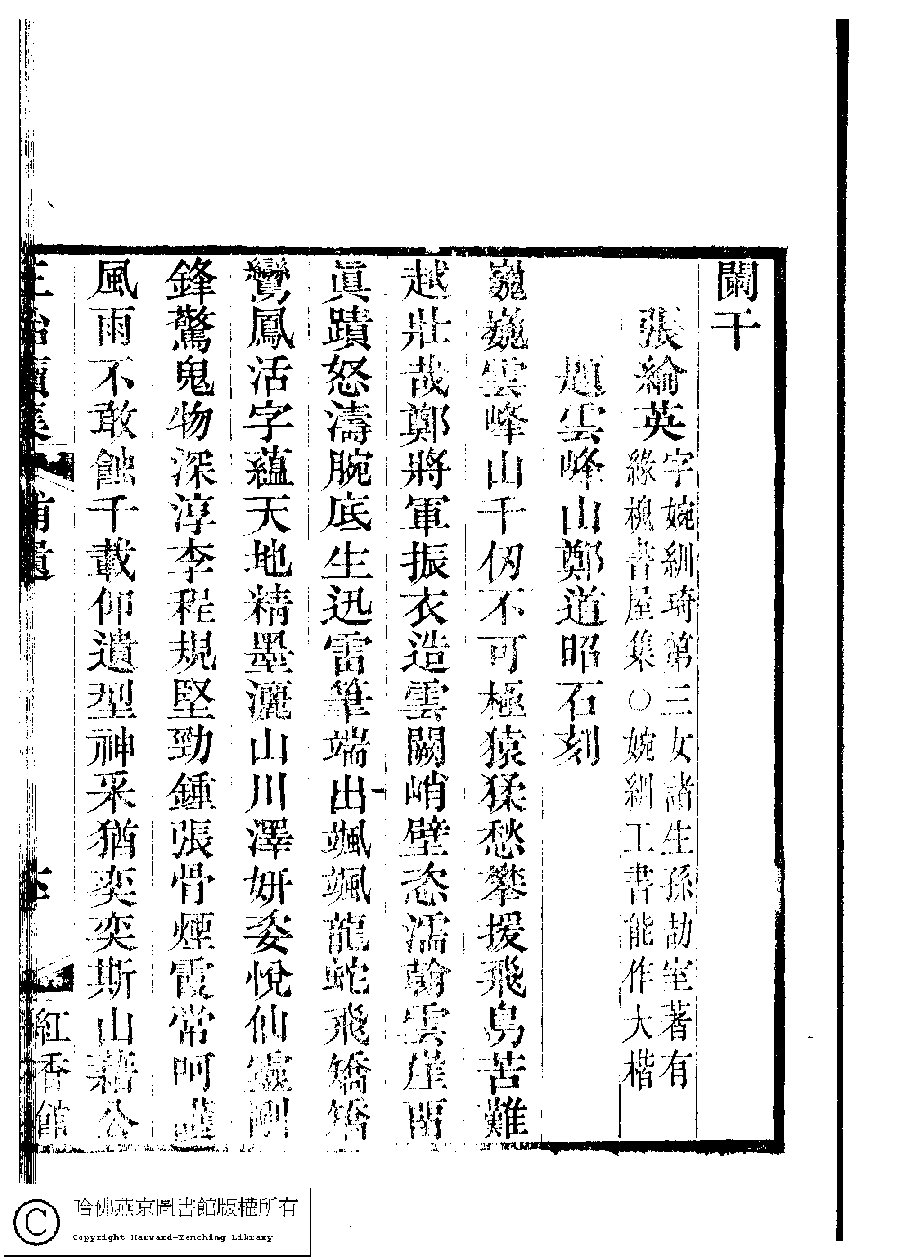 闌干
張綸英字婉紃琦第三女諸生孫劼室著有
綠槐書屋集○婉紃工書能作大楷
題雲峰山鄭道昭石刻
巍巍雲峰山千仞不可極猿猱愁攀援飛鳥苦難
越壯哉鄭將軍振衣造雲闕峭壁恣濡翰雲崖留
眞蹟怒濤腕底生迅雷筆端出颯颯龍蛇飛矯矯
鸞鳳活字蘊天地精墨灑山川澤妍姿悅仙靈剛
鋒驚鬼物深淳李程規堅勁鍾張骨煙霞常呵護
風雨不敢蝕千載仰遺型神采猶奕奕斯山藉公
補遺
紅香館
哈佛燕京圖書館版權所有
Copyright Harvard-Yenching Library